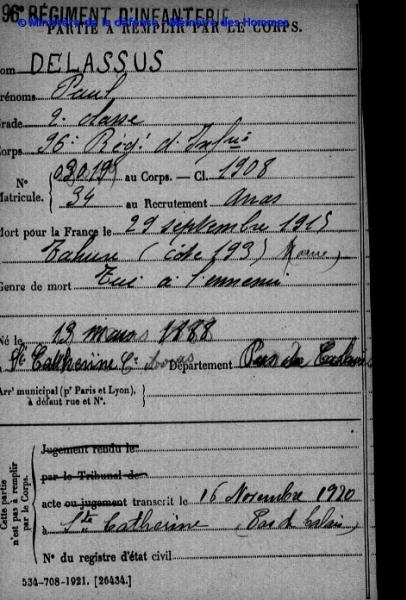 96e RÉGIMENT D'INFANTERIE
© Ministère de la défense - Mémoire des Hommes
PARTIE A REMPLIR PAR LE CORPS.
Nom DELASSUS
Prénoms Paul
Grade 2e classe
Corps 96e Rég.t d'Inf.rie
N° au Corps. — Cl. 1908
Matricule. 34 au Recrutement Arras
Mort pour la France le 29 septembre 1915
Tahure (côte 193) Marne
Genre de mort Tué à l'ennemi
Né le 13 mars 1888
à Ste Catherine Département Pas de Calais
Arrt municipal (pr Paris et Lyon),
à défaut rue et N°.
Cette partie
n'est pas à remplir
par le Corps.
Jugement rendu le
par le Tribunal de
acte ou jugement transcrit le 16 Novembre 1920
à Ste Catherine (Pas de Calais)
N° du registre d'état civil
534-708-1921. [26434.]